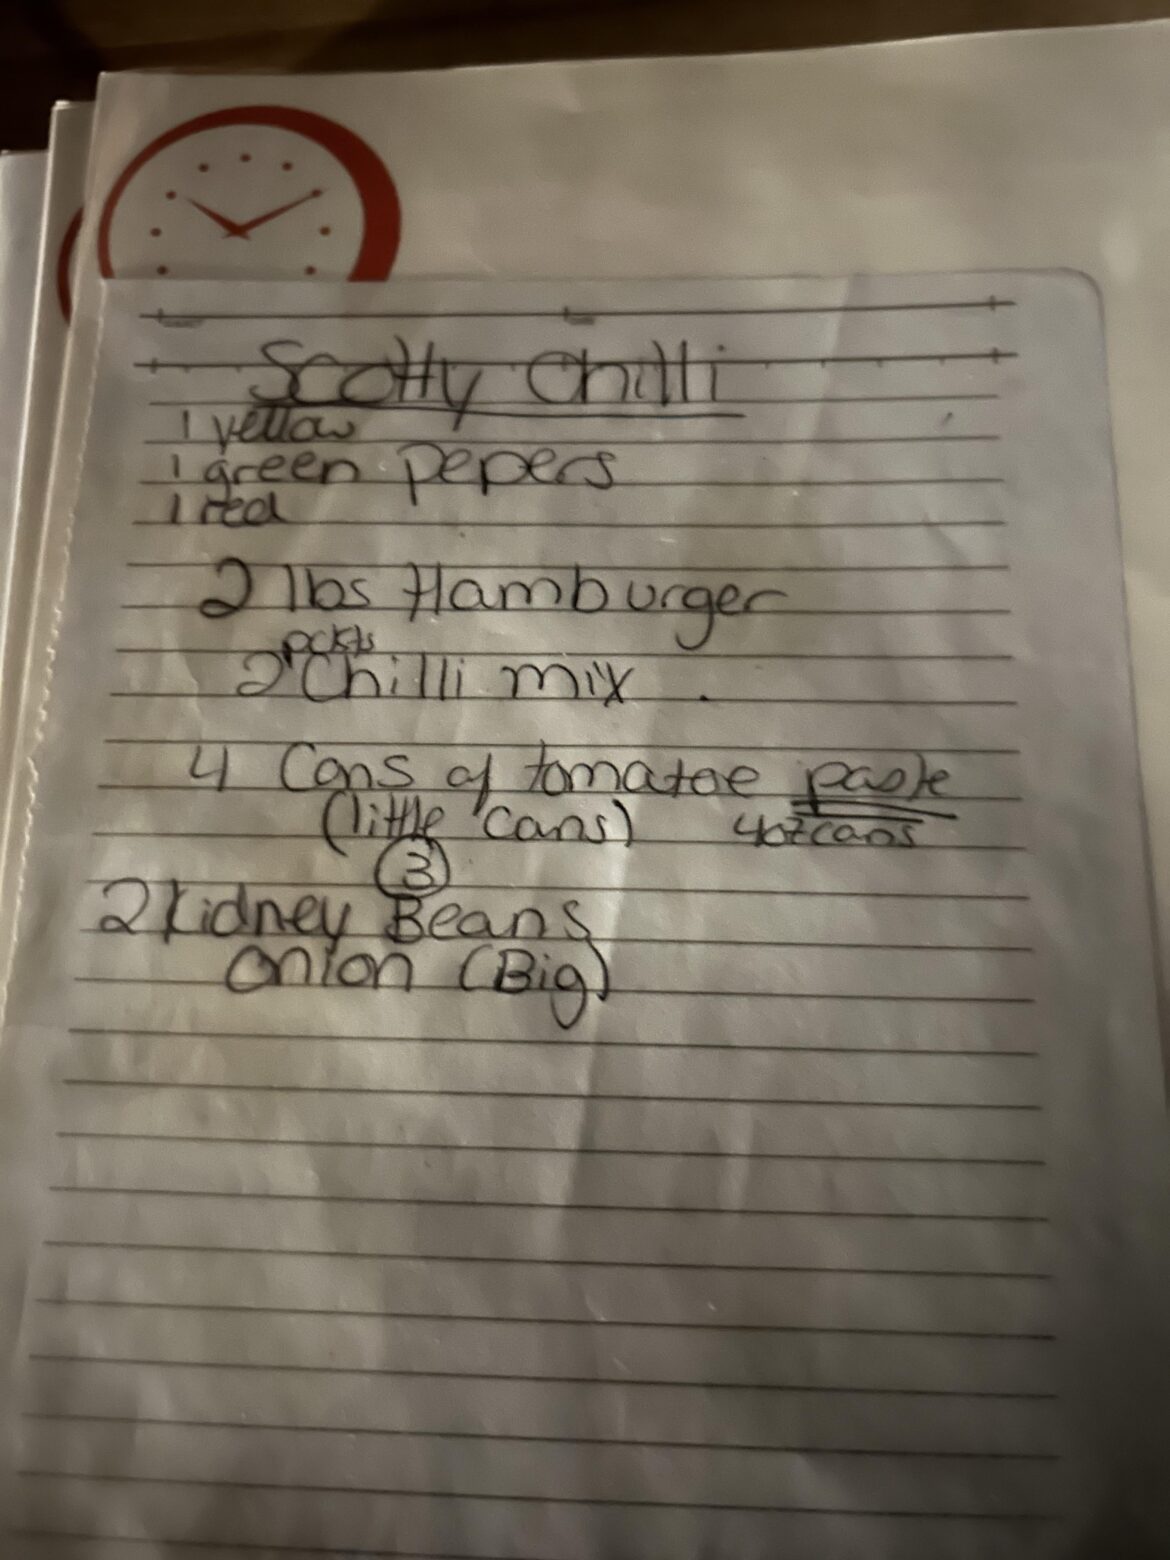 Scotty Chilli
1 yellow
1 green pepers
1 red
2 lbs Hamburger
pckts
2 Chilli mix .
4 Cans of tomatoe paste
(little cans) 4oz cans
3
2 Kidney Beans
onion (Big)